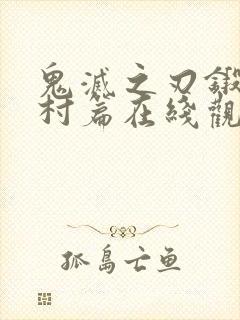 鬼滅之刃鍛
村篇在綫觀
孤島亡魚